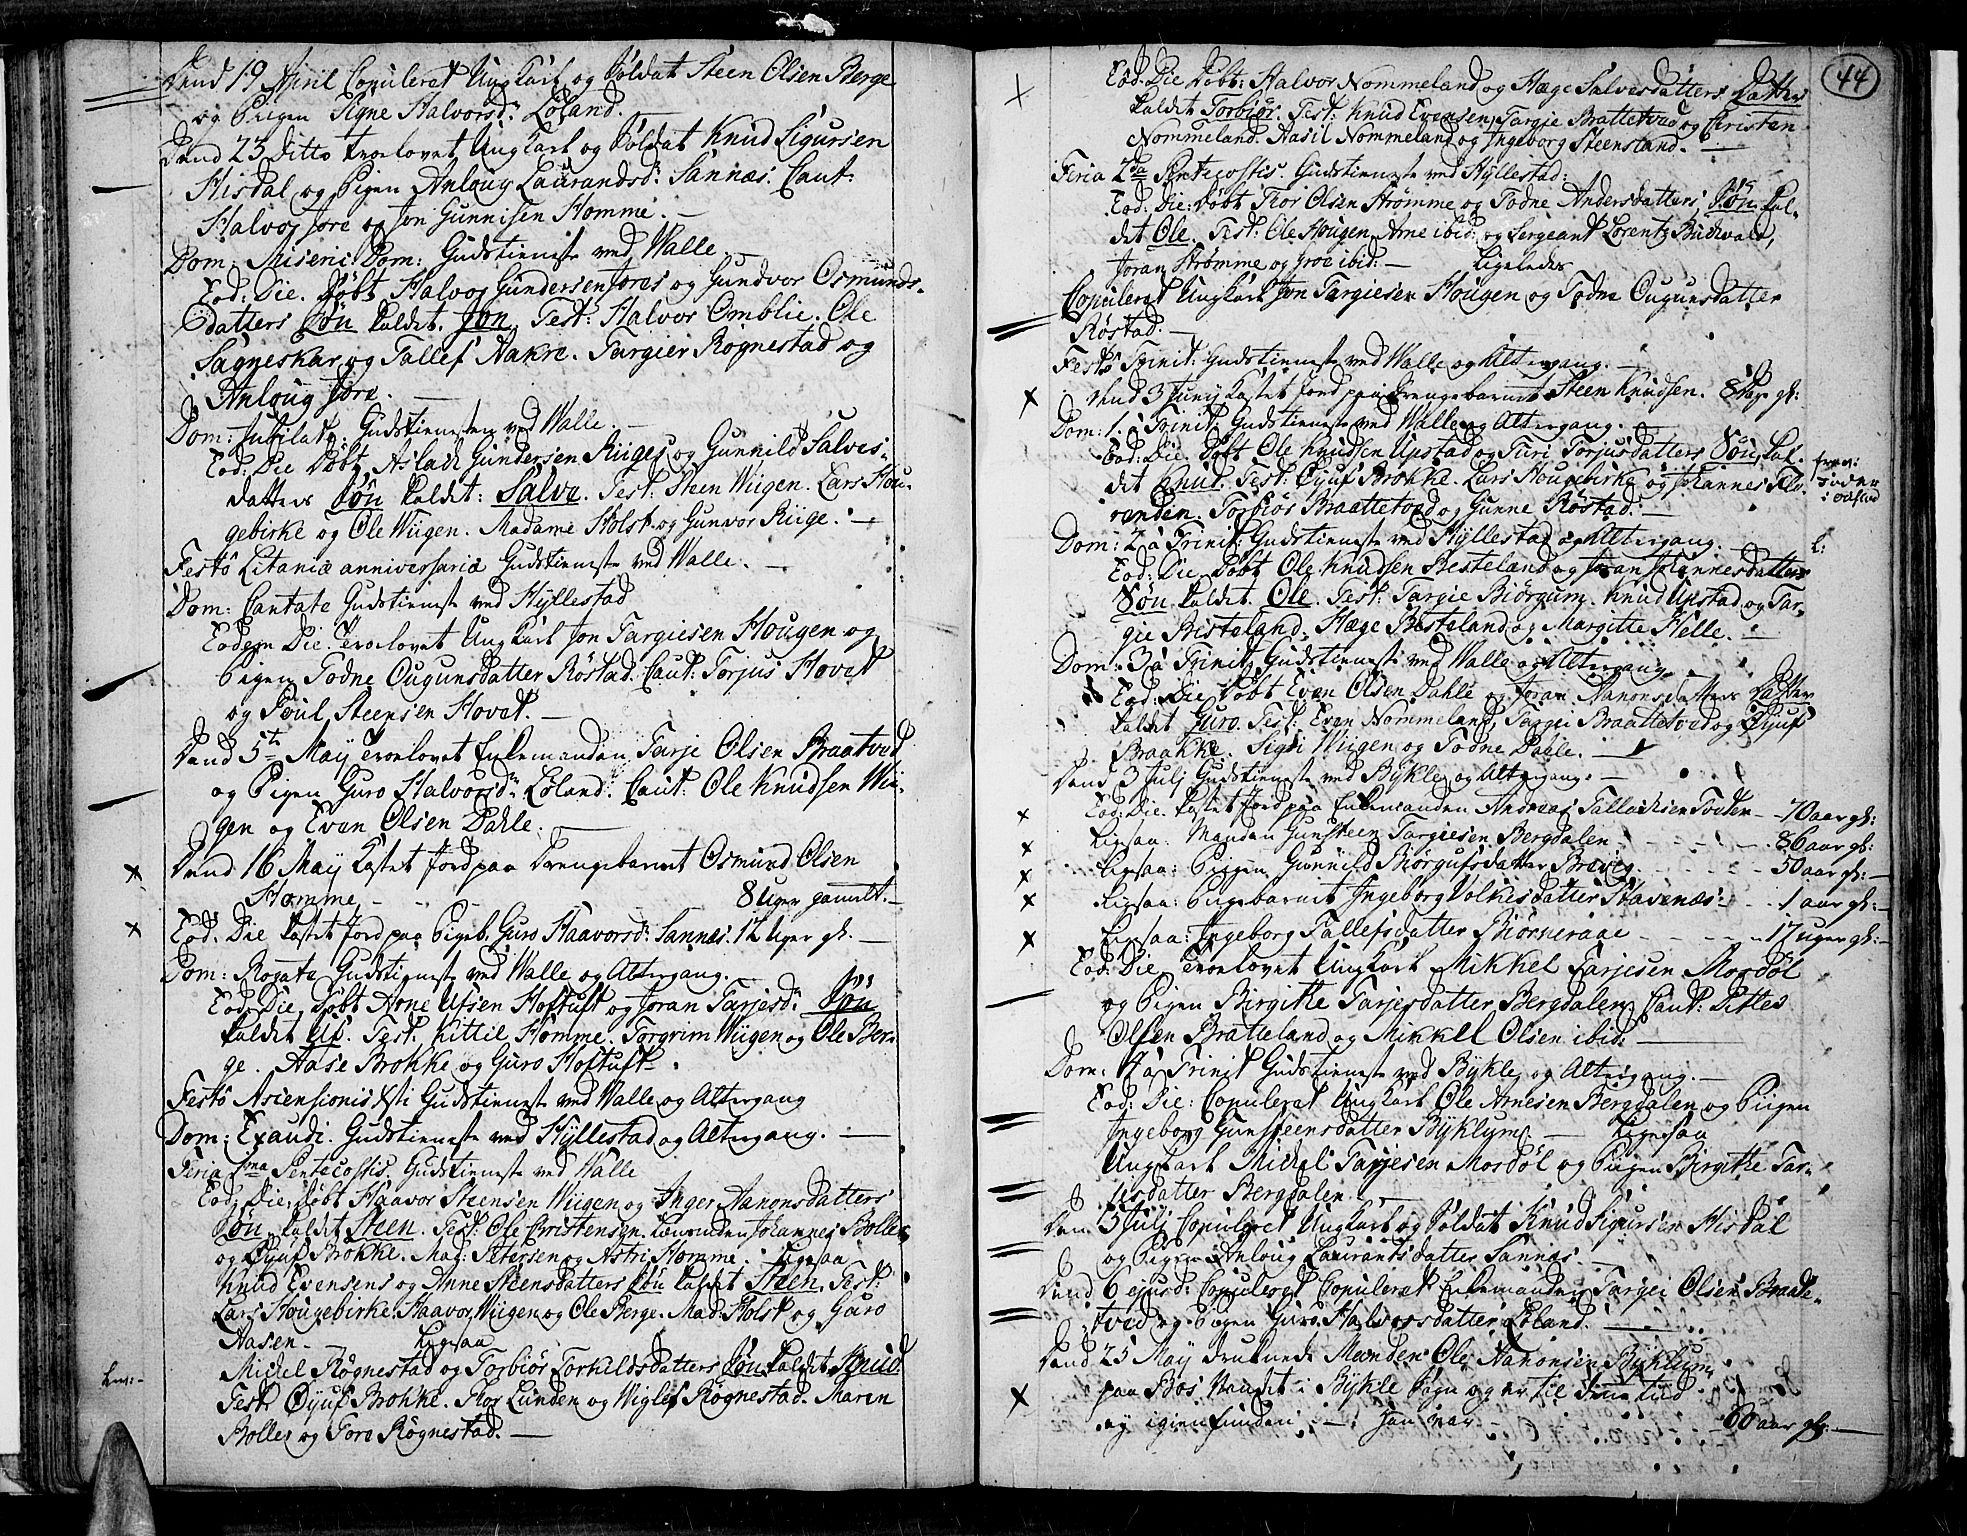 Dend 19 April Copuleret Ungkarl og Soldat Steen Olsen Berge
og Piigen Signe Halvorsd: Löland.
Dend 23 ditto trovlovet Ungkarl og Soldat Knud Sigursen
Hisdal og Pigen Anloug Laurandsd: Sannæs. Caut:
Halvor Jore og Jon Gunnisen Homme. —
Dom: Miseric: Dom: Gudstieneste ved Walle. —
Eod: Die. Döbt Halvor Gundersen Jores og Gundvor Osmunds-
datters Sön kaldet. Jon. Test: Halvor Omblie. Ole
Sagneskar og Tallef Aakre. Targier Rögnestad og
Anloug Jore. —
Dom: Jubilate: Gudstienesten ved Walle. —
Eod: Die Döbt Aslack Gundersen Riiges og Gunnild Salves-
datters Sön kaldet: Salve. Test: Steen Wiigen. Lars Hou-
gebirke og Ole Wiigen. Madame Holst og Gunvor Riige. —
Festô Litaniæ anniversariæ Gudstieneste ved Walle. —
Dom: Cantate Gudstieneste ved Hyllestad
Eodem Die. trovlovet Ungkarl Jon Targiesen Hougen og
Pigen Todne Ougunsdatter Röstad. Caut: Torjus Hovet
og Poul Steensen Hovet. —
Dend 5te May trovlovet Enkemanden Tarje Olsen Braatved
og Pigen Guro Halvorsd: Löland. Caut: Ole Knudsen Wii-
gen og Even Olsen Dahle. —
Dend 16 May Kastet Jord paa Drengebarnet Osmund Olsen
Homme - - - 8 Uger gamelt. —
Eod: Die Kastet Jord paa Pigeb. Guro Haavorsd: Sannæs. 12 Uger gl. —
Dom: Rogate Gudstieneste ved Walle og Altergang. —
Eod: Die, Döbt Arne Ufsen Hoftuft og Joran Tarjesd: Sön
kaldet Uf. Test. Kittil Homme. Torgrim Wiigen og Ole Ber-
ge. Aase Brokke og Guro Hoftuft.
Festô Asiensionis Xsti Gudstieneste ved Walle og Altergang
Dom: Exaudi. Gudstieneste ved Hyllestad og Altergang. —
Feria 1ma Pentecostis, Gudstieneste ved Walle
Eod: Die: Döbt Haavor Steensen Wiigen og Anger Aanonsdatters
Sön kaldet Steen. Test: Ole Christensen. Johannes Bolle
og Öyuf Brokke. Mad: Petersen og Astri Homme. Ligesaa
Knud Evensens og Anne Steensdatters Sön kaldet Steen. Test:
Lars Hougebirke. Haavor Wiigen og Ole Berge. Mad: Holst og Guro
Aasen. — Ligesaa
Michel Rögnestad og Torbiör Torkildsdatters Sön kaldet Knud
Test: Öyuf Brokke. Thor Lunden og Wiglef Rögnestad. Maren
Bolle og Tore Rögnestad. —
44
Eod: Die Döbt: Halvor Nommeland og Hæge Salvesdatters Datter
kaldet Torbiör. Test: Knud Evensen, Targie Brattetved og Christen
Nommeland. Aasil Nommeland og Ingeborg Steensland. —
Feria 2da Pentecostis. Gudstieneste ved Hyllestad:
Eod: Die: Döbt Tior Olsen Strömme og Todne Andersdatters Sön kal-
det Ole. Test: Ole Hougen, Arne ibid: og Sergeant Lorentz Buchwald,
Joran Strömme og Groe ibid: — Ligeledes
Copuleret Ungkarl Jon Targiesen Hougen og Todne Ougunsdatter
Röstad. —
Festô Trinit: Gudstieneste ved Walle og Altergang. —
Dend 3 Junij Kastet Jord paa Drengebarnet Steen Knudsen. 8 Dage gl:
Dom: 1. a Trinit. Gudstieneste ved Walle og Altergang.
Eod: Die Döbt Ole Knudsen Upstad og Turi Torjusdatters Sön, kal-
det Knud. Test: Öyuf Brokke. Lars Hougebirke og Johannes Flv-
renden. Torbiör Braattetvæd og Gunne Röstad. —
Dom: 2 a Trinit: Gudstieneste ved Hyllestad og Altergang
Eod: Die Döbt Ole Knudsen Besteland og Joran Johannesdatters
Sön kaldet. Ole. Test: Targie Biörgum. Knud Upstad og Tar-
gie Bestelaand. Hæge Besteland og Margitte Helle. —
Dom: 3 a Trinit. Gudstieneste ved Walle og Altergang
Eod: Die Döbt Even Olsen Dahle og Joran Aanonsdatters Datter
kaldet Guro. Test: Even Nommeland, Targei Braattetved og Öyuf
Braakke. Sigri Wiigen og Todne Dahle. —
Dend 3 Julj Gudstieneste ved Bykle og Altergang. —
Eod: Die. kastet Jord paa Enkemanden Andreas Tallachsen Tvedten — 70 aar gl:
Ligesaa: Manden Gunsteen Targiesen Bergdalen - - - 86 aar gl:
Ligesaa: Pigen Gunnild Biörgufsdatter Breivig - - - 50 aar gl: —
Ligesaa: Pigebarnet Ingeborg Volkesdatter Stavenæs - - 1 aar gl: —
Ligesaa: Ingeborg Tallefsdatter Biörneraae - - - 17 uger gl: —
Eod: Die trovlovet Ungkarl Mikkel Tarjesen Mosdöl
og Pigen Birgitte Tarjesdatter Bergdalen, Caut: Petter
Olsen Bratteland og Mikkel Olsen ibid: —
Dom: 4 a Trinit Gudstieneste ved Bykle, og Altergang. —
Eod: Die: Copuleret Ungkarl Ole Arnesen Bergdalen og Pigen
Ingeborg Gunsteensdatter Byklum. — Ligesaa
Ungkarl Michel Tarjesen Mosdöl og Pigen Birgitte Tar-
jisdatter Bergdalen. —
Den 5 Julj Copuleret Ungkarl og Soldat Knud Sigursen Hisdal
og Pigen Anloug Laurantsdatter Sannæs. —
Dend 6 ejusd: Copuleret Copuleret Enkemanden Targei Olsen Braate-
tved og Pigen Guro Halvorsdatter Löland. —
Dend 25 May druknede Manden Ole Aanonsen Byklum
paa Bos Vandet i Bykle Sogn og er til denne tiid
ey igienfunden. — han var - - - 60 aar gl. —